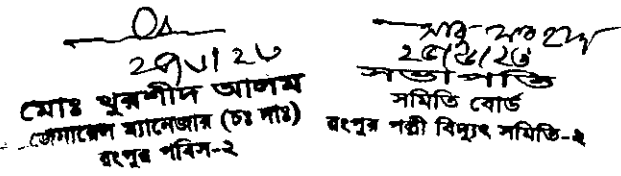 মোঃ খুরশীদ আলম
জেনারেল ম্যানেজার (চঃ দাঃ)
রংপুর পবিস-২
সভাপতি
সমিতি বোর্ড
রংপুর পল্লী বিদ্যুৎ সমিতি-২